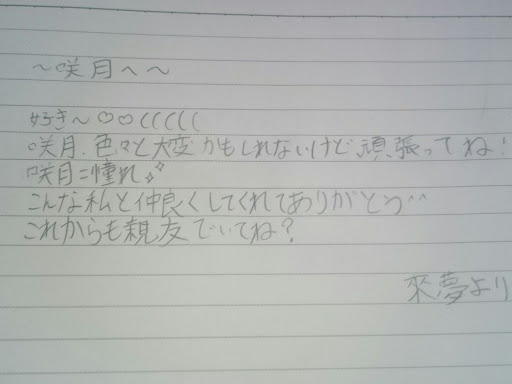 〜咲月へ〜
好き〜♡♡(((((
咲月、色々と大変かもしれないけど頑張ってね!
咲月=憧れ✨
こんな私と仲良くしてくれてありがとう^^
これからも親友でいてね?
來夢より